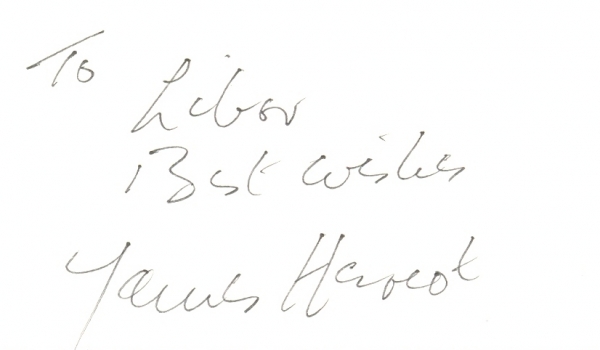 To Libor
Best wishes
James Harcot